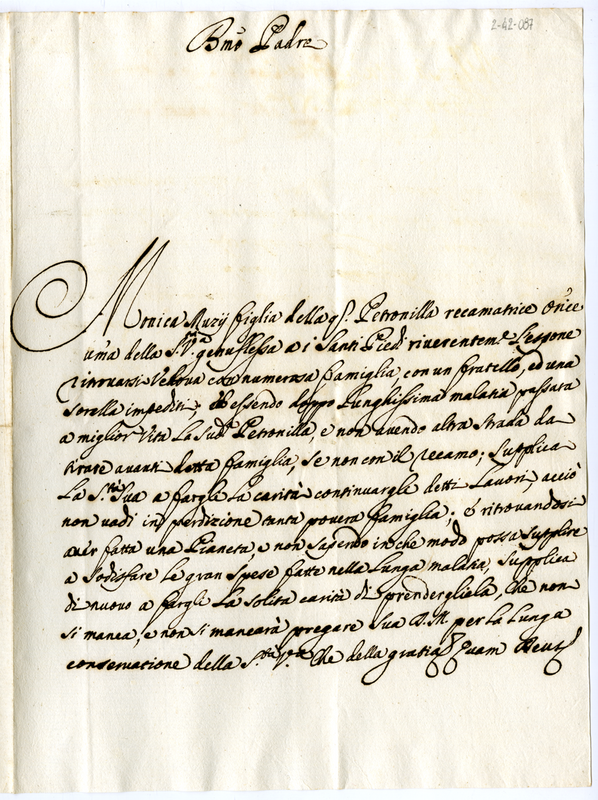 2-42-087
Bmo Padre
Monica Muzij figlia della q. Petronilla recamatrice Or.ce
uma della S.V. genuflessa a i Santi Piedi riverentem.e l'espone
ritrovarsi Vedova con numerosa famiglia con un fratello, ed una
sorella impediti, et essendo doppo lunghissima malatia passata
a miglior Vita la Sud.a Petronilla, e non avendo altra strada da
tirare avanti detta famiglia, se non con il recamo; Supplica
la S.tà Sua a fargla la carità continuargle detti lavori, acciò
non vadi in perdizione tanta povera famiglia; et ritrovandosi
aver fatta una Pianeta, e non sapendo in che modo possa supplire
a sodisfare le gran spese fatte nella lunga malatia, supplica
di nuovo a fargli la solita carità di prendergliela, che non
si manca, e non si mancarà pregare sua D.M. per la lunga
conservatione della S.tà V.ra Che della gratia Quam Deus